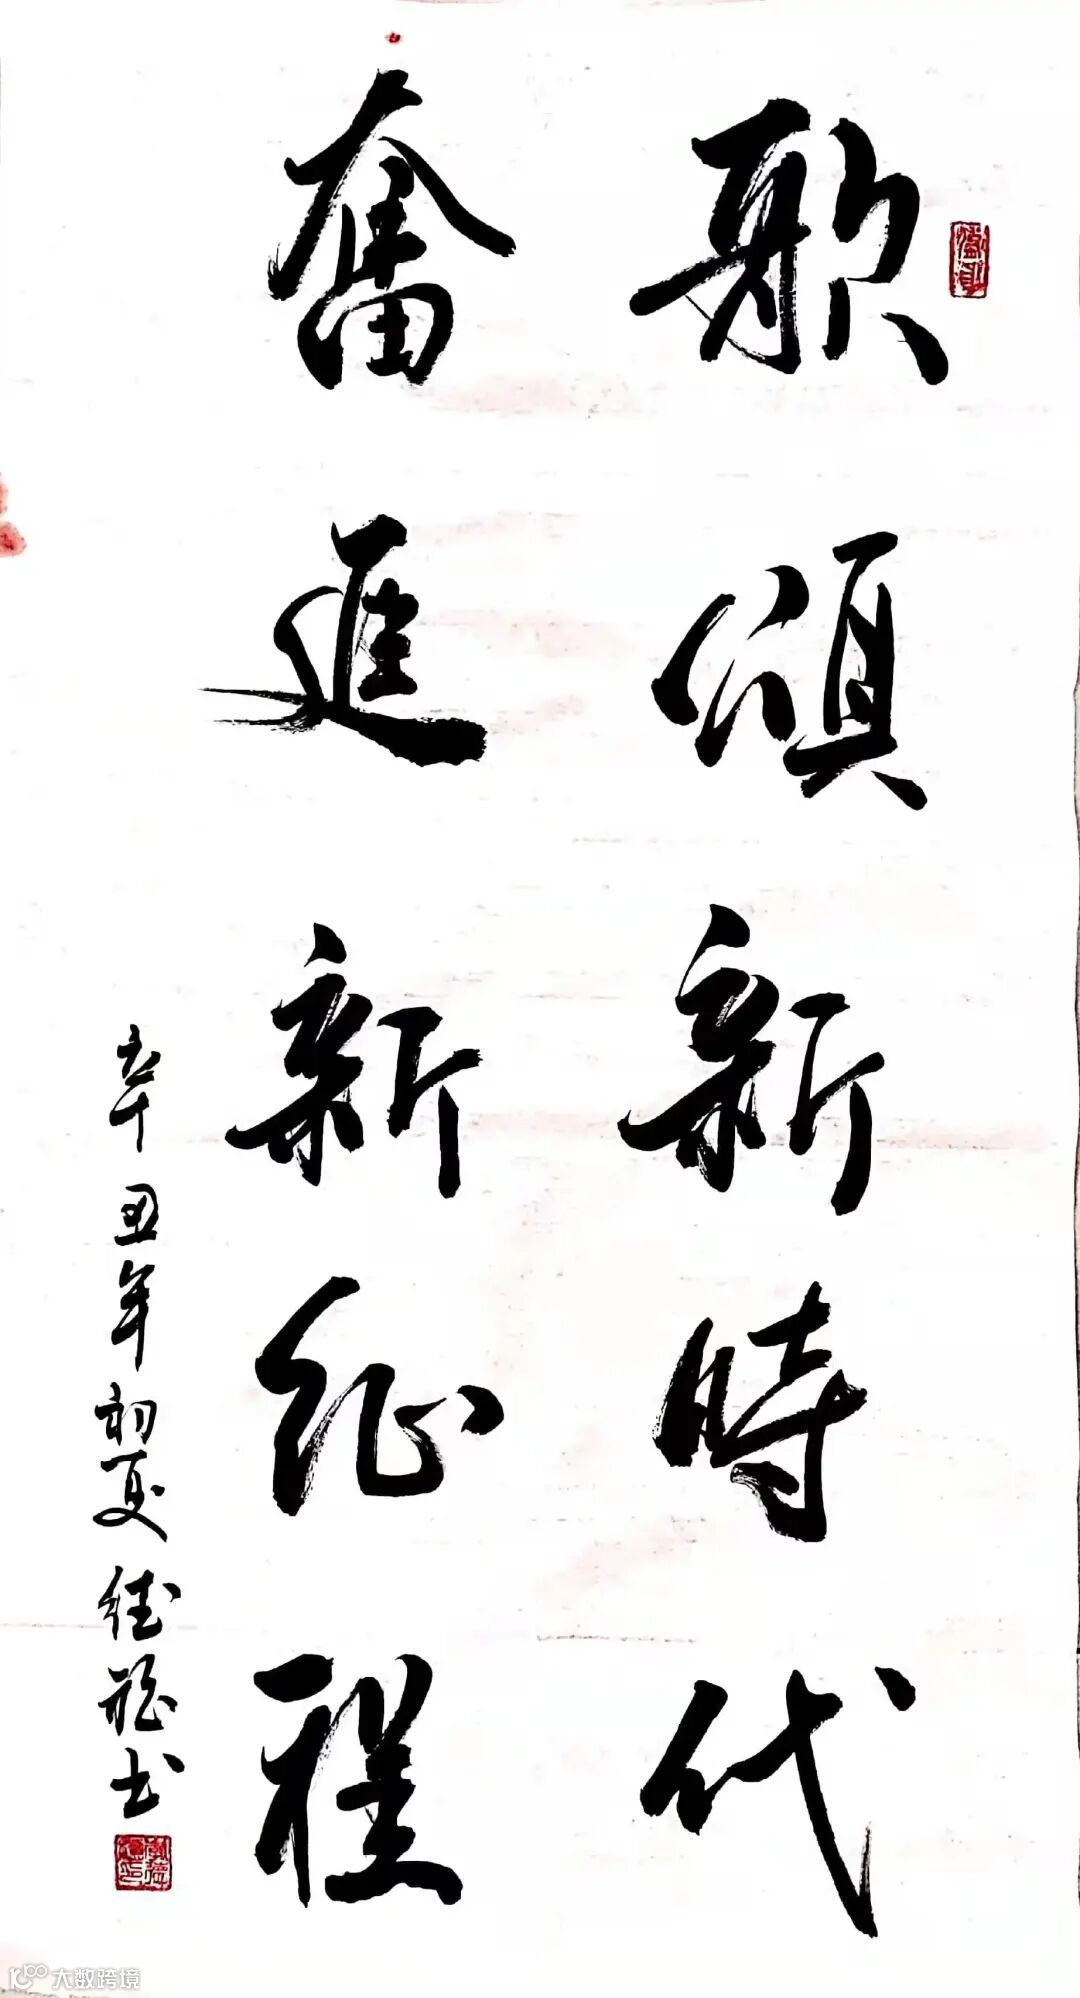 歌頌新時代
奮進新征程
辛丑年初夏德福书
大数跨境